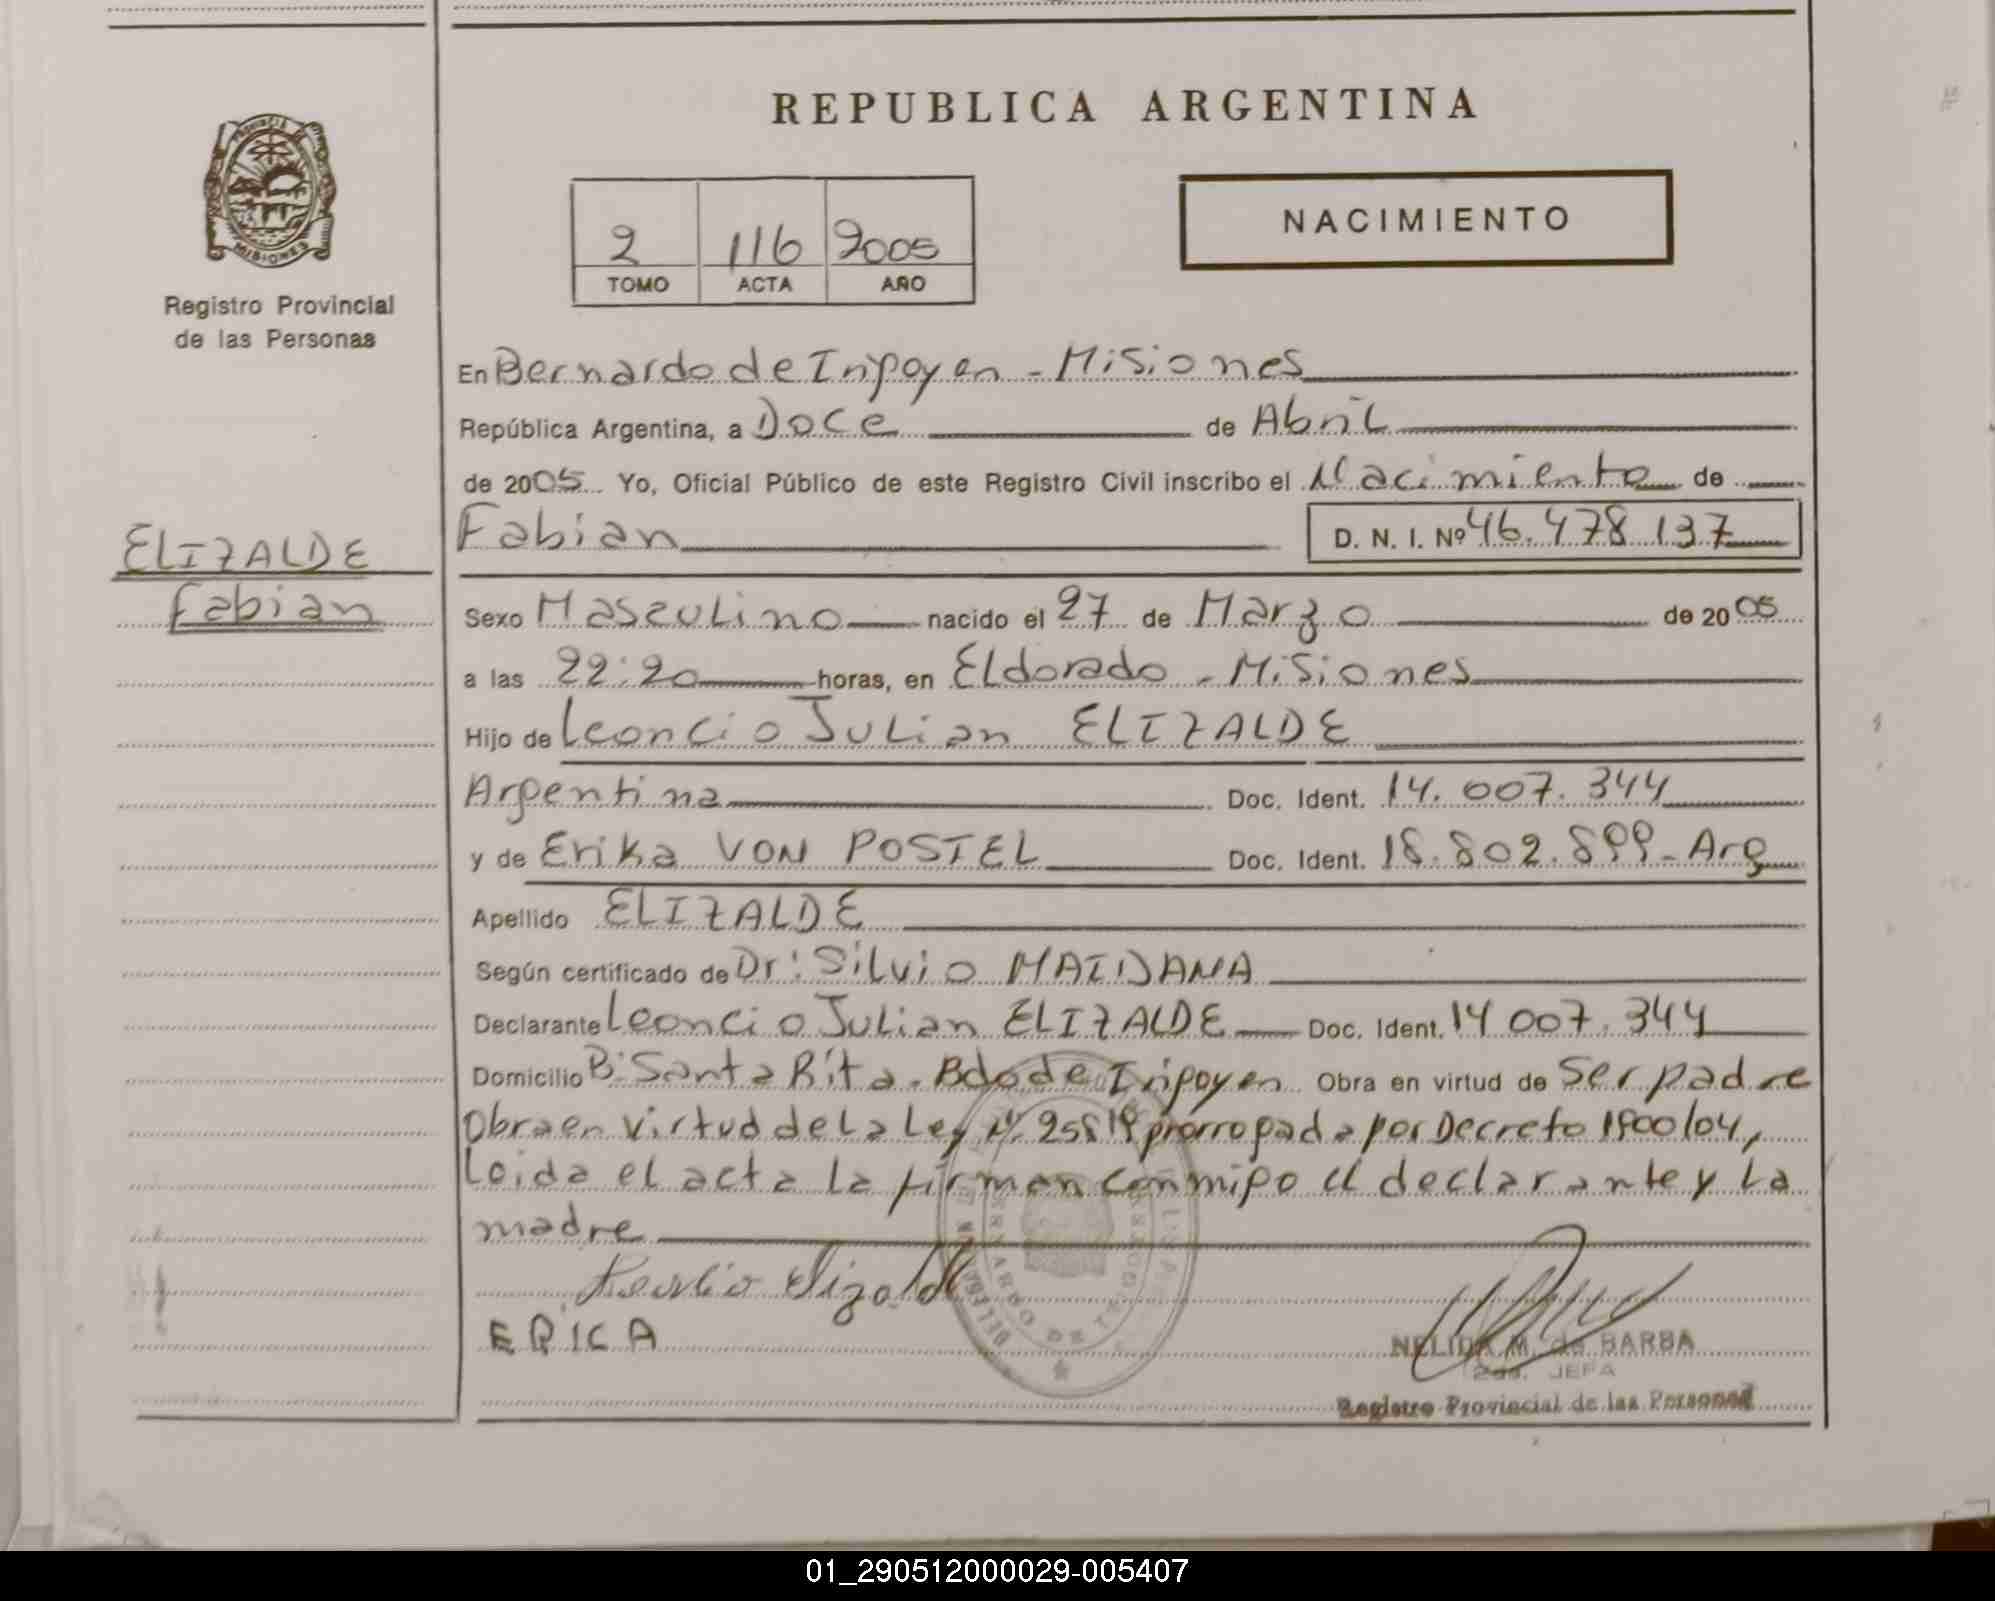 REPUBLICA ARGENTINA
PROVINCIA DE
MISIONES
Registro Provincial
de las Personas
2 116 2005
TOMO ACTA AÑO
NACIMIENTO
En Bernardo de Irigoyen - Misiones
República Argentina, a Doce de Abril
de 2005 Yo, Oficial Público de este Registro Civil inscribo el Nacimiento de
Fabian D. N. I. Nº 46.478.137
ELIZALDE
Fabian
Sexo Masculino nacido el 27 de Marzo de 2005
a las 22:20 horas, en Eldorado - Misiones
Hijo de Leoncio Julian ELIZALDE
Argentina Doc. Ident. 14.007.344
y de Erika VON POSTEL Doc. Ident. 18.802.899 - Arg
Apellido ELIZALDE
Según certificado de Dr: Silvio MAIDANA
Declarante Leoncio Julian ELIZALDE Doc. Ident. 14.007.344
Domicilio Bº Santa Rita - Bdo de Irigoyen Obra en virtud de Ser padre
Obra en virtud de la Ley Nº 25819 prorrogada por Decreto 1900/04,
Leida el acta la firman conmigo el declarante y La
madre
ERICA
NELIDA M. de BARBA
2da. JEFA
Registro Provincial de las Personas
01_290512000029-005407